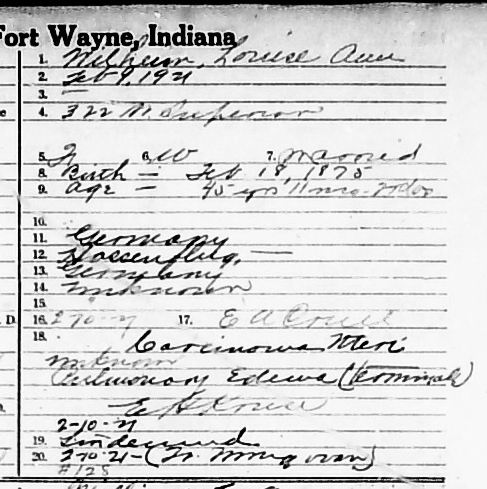 Fort Wayne, Indiana
1. Louise Ann
2. Feb 9, 1921
3. —
4. 322 W. Superior
5. F 6. W 7. Married
8. Birth — Feb 18, 1875
9. Age — 45 yrs 11 mo.
10.
11. Germany
12.
13. Germany
14. unknown
15.
D. 16. 2-10-21 17. E A
18.
Carcinoma Uteri
unknown
Pulmonary Edema (terminal)
E
2-10-21
19. Lindenwood
20. 2-10-21 - (
#128